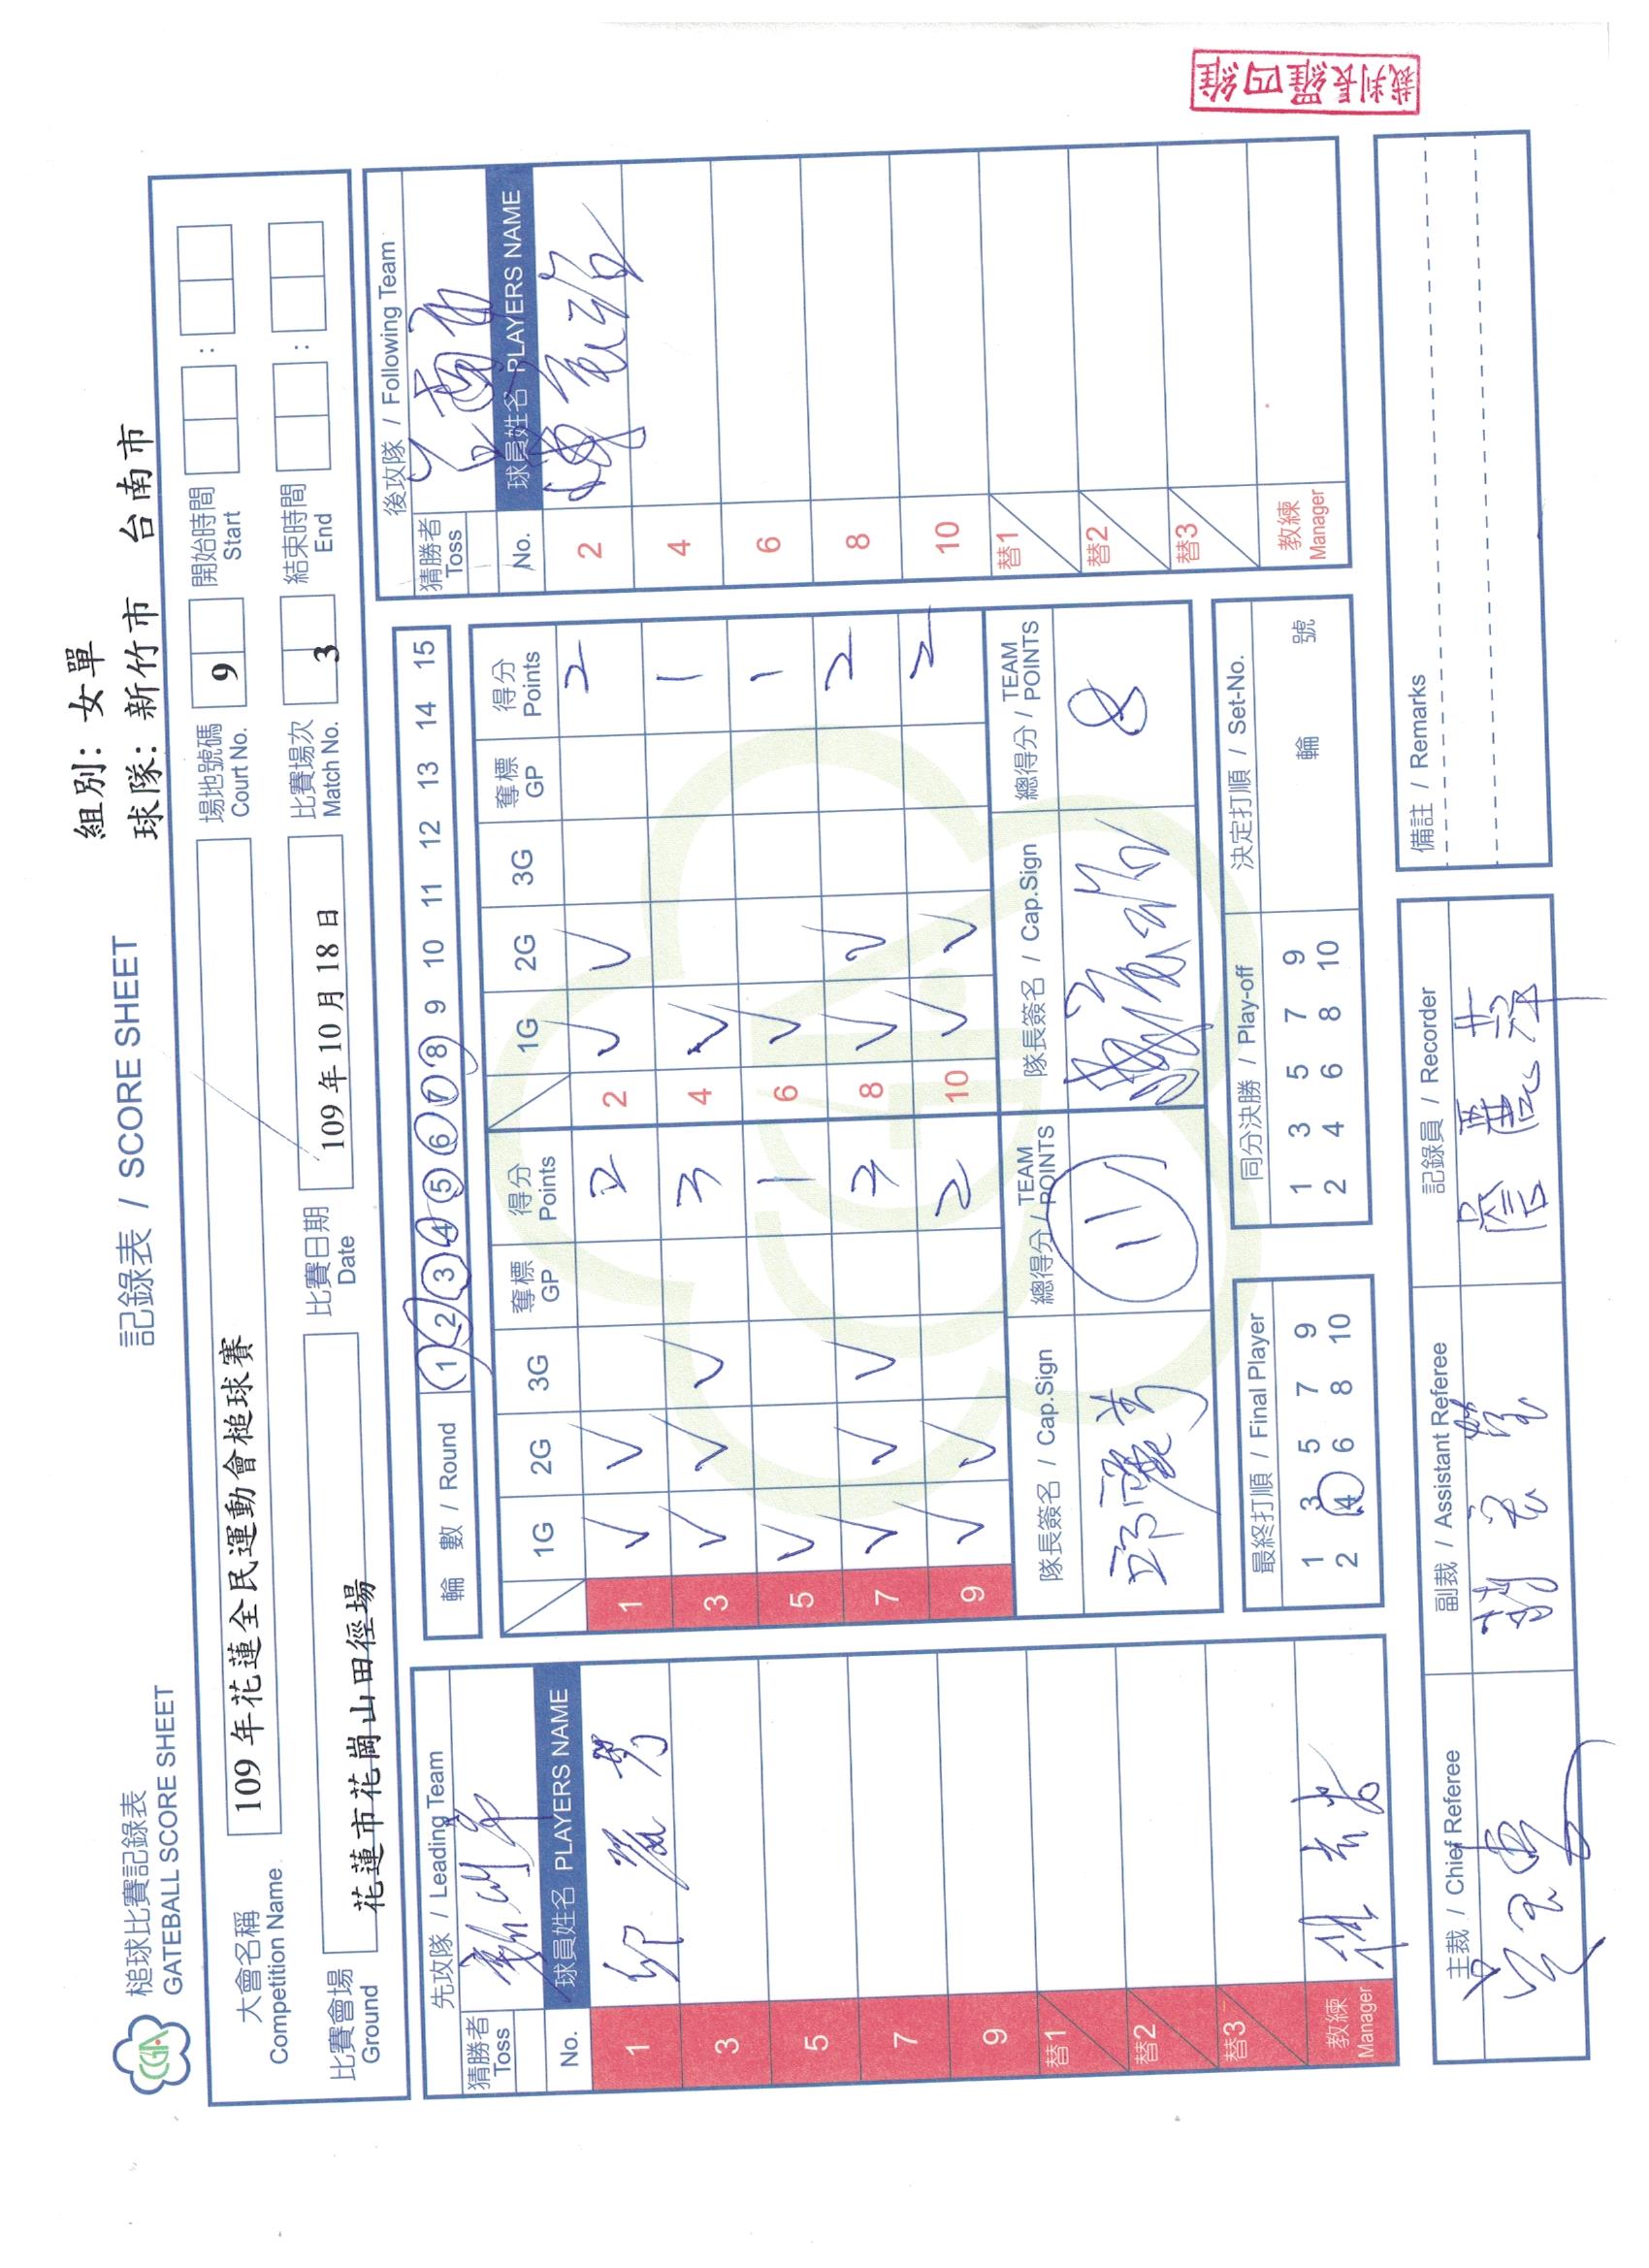 組別：女單
球隊：新竹市 台南市
槌球比賽記錄表
GATEBALL SCORE SHEET
記錄表 / SCORE SHEET
大會名稱
Competition Name
109 年花蓮全民運動會槌球賽
場地號碼
Court No.
9
開始時間
Start
:
比賽會場
Ground
花蓮市花崗山田徑場
比賽日期
Date
109 年 10 月 18 日
比賽場次
Match No.
3
結束時間
End
:
猜勝者
Toss
先攻隊 / Leading Team
新竹市
No.
球員姓名 PLAYERS NAME
1
3
5
7
9
替1
替2
替3
教練
Manager
輪 數 / Round 1 2 3 4 5 6 7 8 9 10 11 12 13 14 15
1G 2G 3G 奪標 GP 得分 Points 1G 2G 3G 奪標 GP 得分 Points
1 √ √ 2 2 √ √ 2
3 √ √ √ 3 4 √ 1
5 √ 1 6 √ 1
7 √ √ √ 3 8 √ √ 2
9 √ √ 2 10 √ √ 2
隊長簽名 / Cap.Sign 總得分 / TEAM POINTS 隊長簽名 / Cap.Sign 總得分 / TEAM POINTS
11 8
最終打順 / Final Player
1 3 5 7 9
2 4 6 8 10
同分決勝 / Play-off
1 3 5 7 9
2 4 6 8 10
決定打順 / Set-No.
輪 號
猜勝者
Toss
後攻隊 / Following Team
台南市
No.
球員姓名 PLAYERS NAME
2
4
6
8
10
替1
替2
替3
教練
Manager
主裁 / Chief Referee
副裁 / Assistant Referee
記錄員 / Recorder
備註 / Remarks
裁判長羅四維